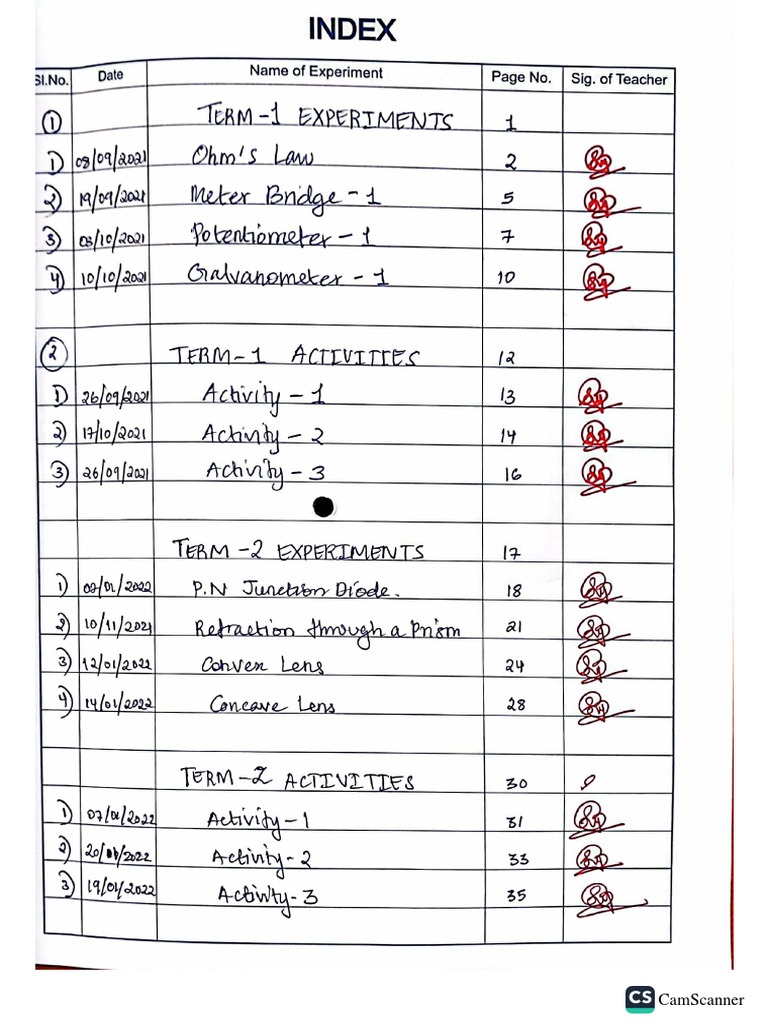 INDEX
Sl.No. Date Name of Experiment Page No. Sig. of Teacher
① TERM-1 EXPERIMENTS 1
1) 08/09/2021 Ohm's Law 2
2) 19/09/2021 Meter Bridge - 1 5
3) 03/10/2021 Potentiometer - 1 7
4) 10/10/2021 Galvanometer - 1 10
② TERM-1 ACTIVITIES 12
1) 26/09/2021 Activity - 1 13
2) 17/10/2021 Activity - 2 14
3) 26/09/2021 Activity - 3 16
TERM-2 EXPERIMENTS 17
1) P.N Junction Diode. 18
2) 10/11/2021 Refraction through a Prism 21
3) 12/01/2022 Convex Lens 24
4) 14/01/2022 Concave Lens 28
TERM-2 ACTIVITIES 30
1) 07/01/2022 Activity-1 31
2) 20/01/2022 Activity-2 33
3) 19/01/2022 Activity-3 35
CS CamScanner